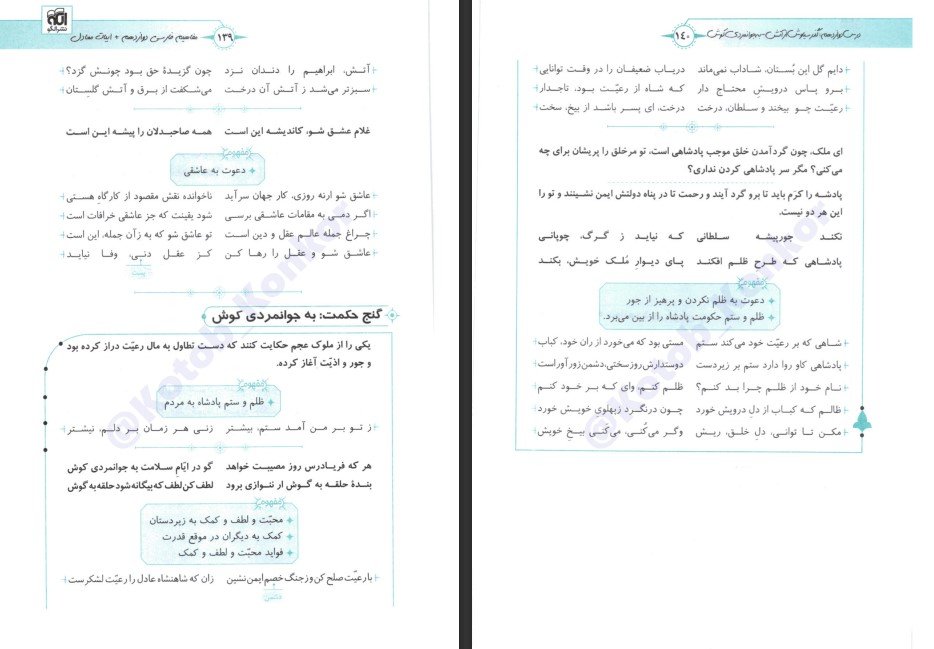 نشرالگو
مفاهیم فارسی دوازدهم + ابیات معادل
۱۳۹
آتش، ابراهیم را دندان نزد چون گزیدهٔ حق بود چونش گزد؟
سبزتر می‌شد ز آتش آن درخت می‌شکفت از برق و آتش گلستان
غلام عشق شو، کاندیشه این است همه صاحبدلان را پیشه این است
مفهوم
دعوت به عاشقی
عاشق شو ارنه روزی، کار جهان سرآید ناخوانده نقش مقصود از کارگاه هستی
اگر دمی به مقامات عاشقی برسی شود یقینت که جز عاشقی خرافات است
چراغ جمله عالم عقل و دین است تو عاشق شو که به زآن جمله، این است
عاشق شو و عقل را رها کن کز عقل دنی، وفا نیاید
پست
گنج حکمت: به جوانمردی کوش
یکی را از ملوک عجم حکایت کنند که دست تطاول به مال رعیّت دراز کرده بود
و جور و اذیّت آغاز کرده.
مفهوم
ظلم و ستم پادشاه به مردم
ز تو بر من آمد ستم، بیشتر زنی هر زمان بر دلم، نیشتر
هر که فریادرس روز مصیبت خواهد گو در ایّام سلامت به جوانمردی کوش
بندهٔ حلقه به گوش ار ننوازی برود لطف کن لطف که بیگانه شود حلقه به گوش
مفهوم
محبّت و لطف و کمک به زیردستان
کمک به دیگران در موقع قدرت
فواید محبّت و لطف و کمک
با رعیّت صلح کن وز جنگ خصم ایمن نشین زان که شاهنشاه عادل را رعیّت لشکر است
دشمن
۱۴۰
دایم گل این بُستان، شاداب نمی‌ماند دریاب ضعیفان را در وقت توانایی
برو پاس درویش محتاج دار که شاه از رعیّت بود، تاجدار
رعیّت چو بیخند و سلطان، درخت درخت، ای پسر باشد از بیخ، سخت
ای ملک، چون گردآمدن خلق موجب پادشاهی است، تو مرخلق را پریشان برای چه
می‌کنی؟ مگر سر پادشاهی کردن نداری؟
پادشه را کَرَم باید تا برو گرد آیند و رحمت تا در پناه دولتش ایمن نشینند و تو را
این هر دو نیست.
نکند جورپیشه سلطانی که نیاید ز گرگ، چوپانی
پادشاهی که طرح ظلم افکند پای دیوار مُلک خویش، بکند
مفهوم
دعوت به ظلم نکردن و پرهیز از جور
ظلم و ستم حکومت پادشاه را از بین می‌برد.
شاهی که بر رعیّت خود می‌کند ستم مستی بود که می‌خورد از ران خود، کباب
پادشاهی کاو روا دارد ستم بر زیردست دوستدارش روز سختی، دشمن زورآور است
نام خود از ظلم چرا بد کنم؟ ظلم کنم، وای که بر خود کنم
ظالم که کباب از دل درویش خورد چون درنگرد ز پهلوی خویش خورد
مکن تا توانی، دل خلق، ریش وگر می‌کُنی، می‌کَنی بیخ خویش
@Kotob_Konkor
@Kotob_Konkor